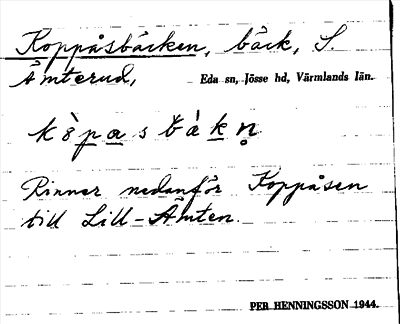 Koppåsbäcken, bäck, S.
Ämterud, Eda sn, Jösse hd, Värmlands län.
Rinner nedanför Koppåsen
till Lill-Ämten.
PER HENNINGSSON 1944.